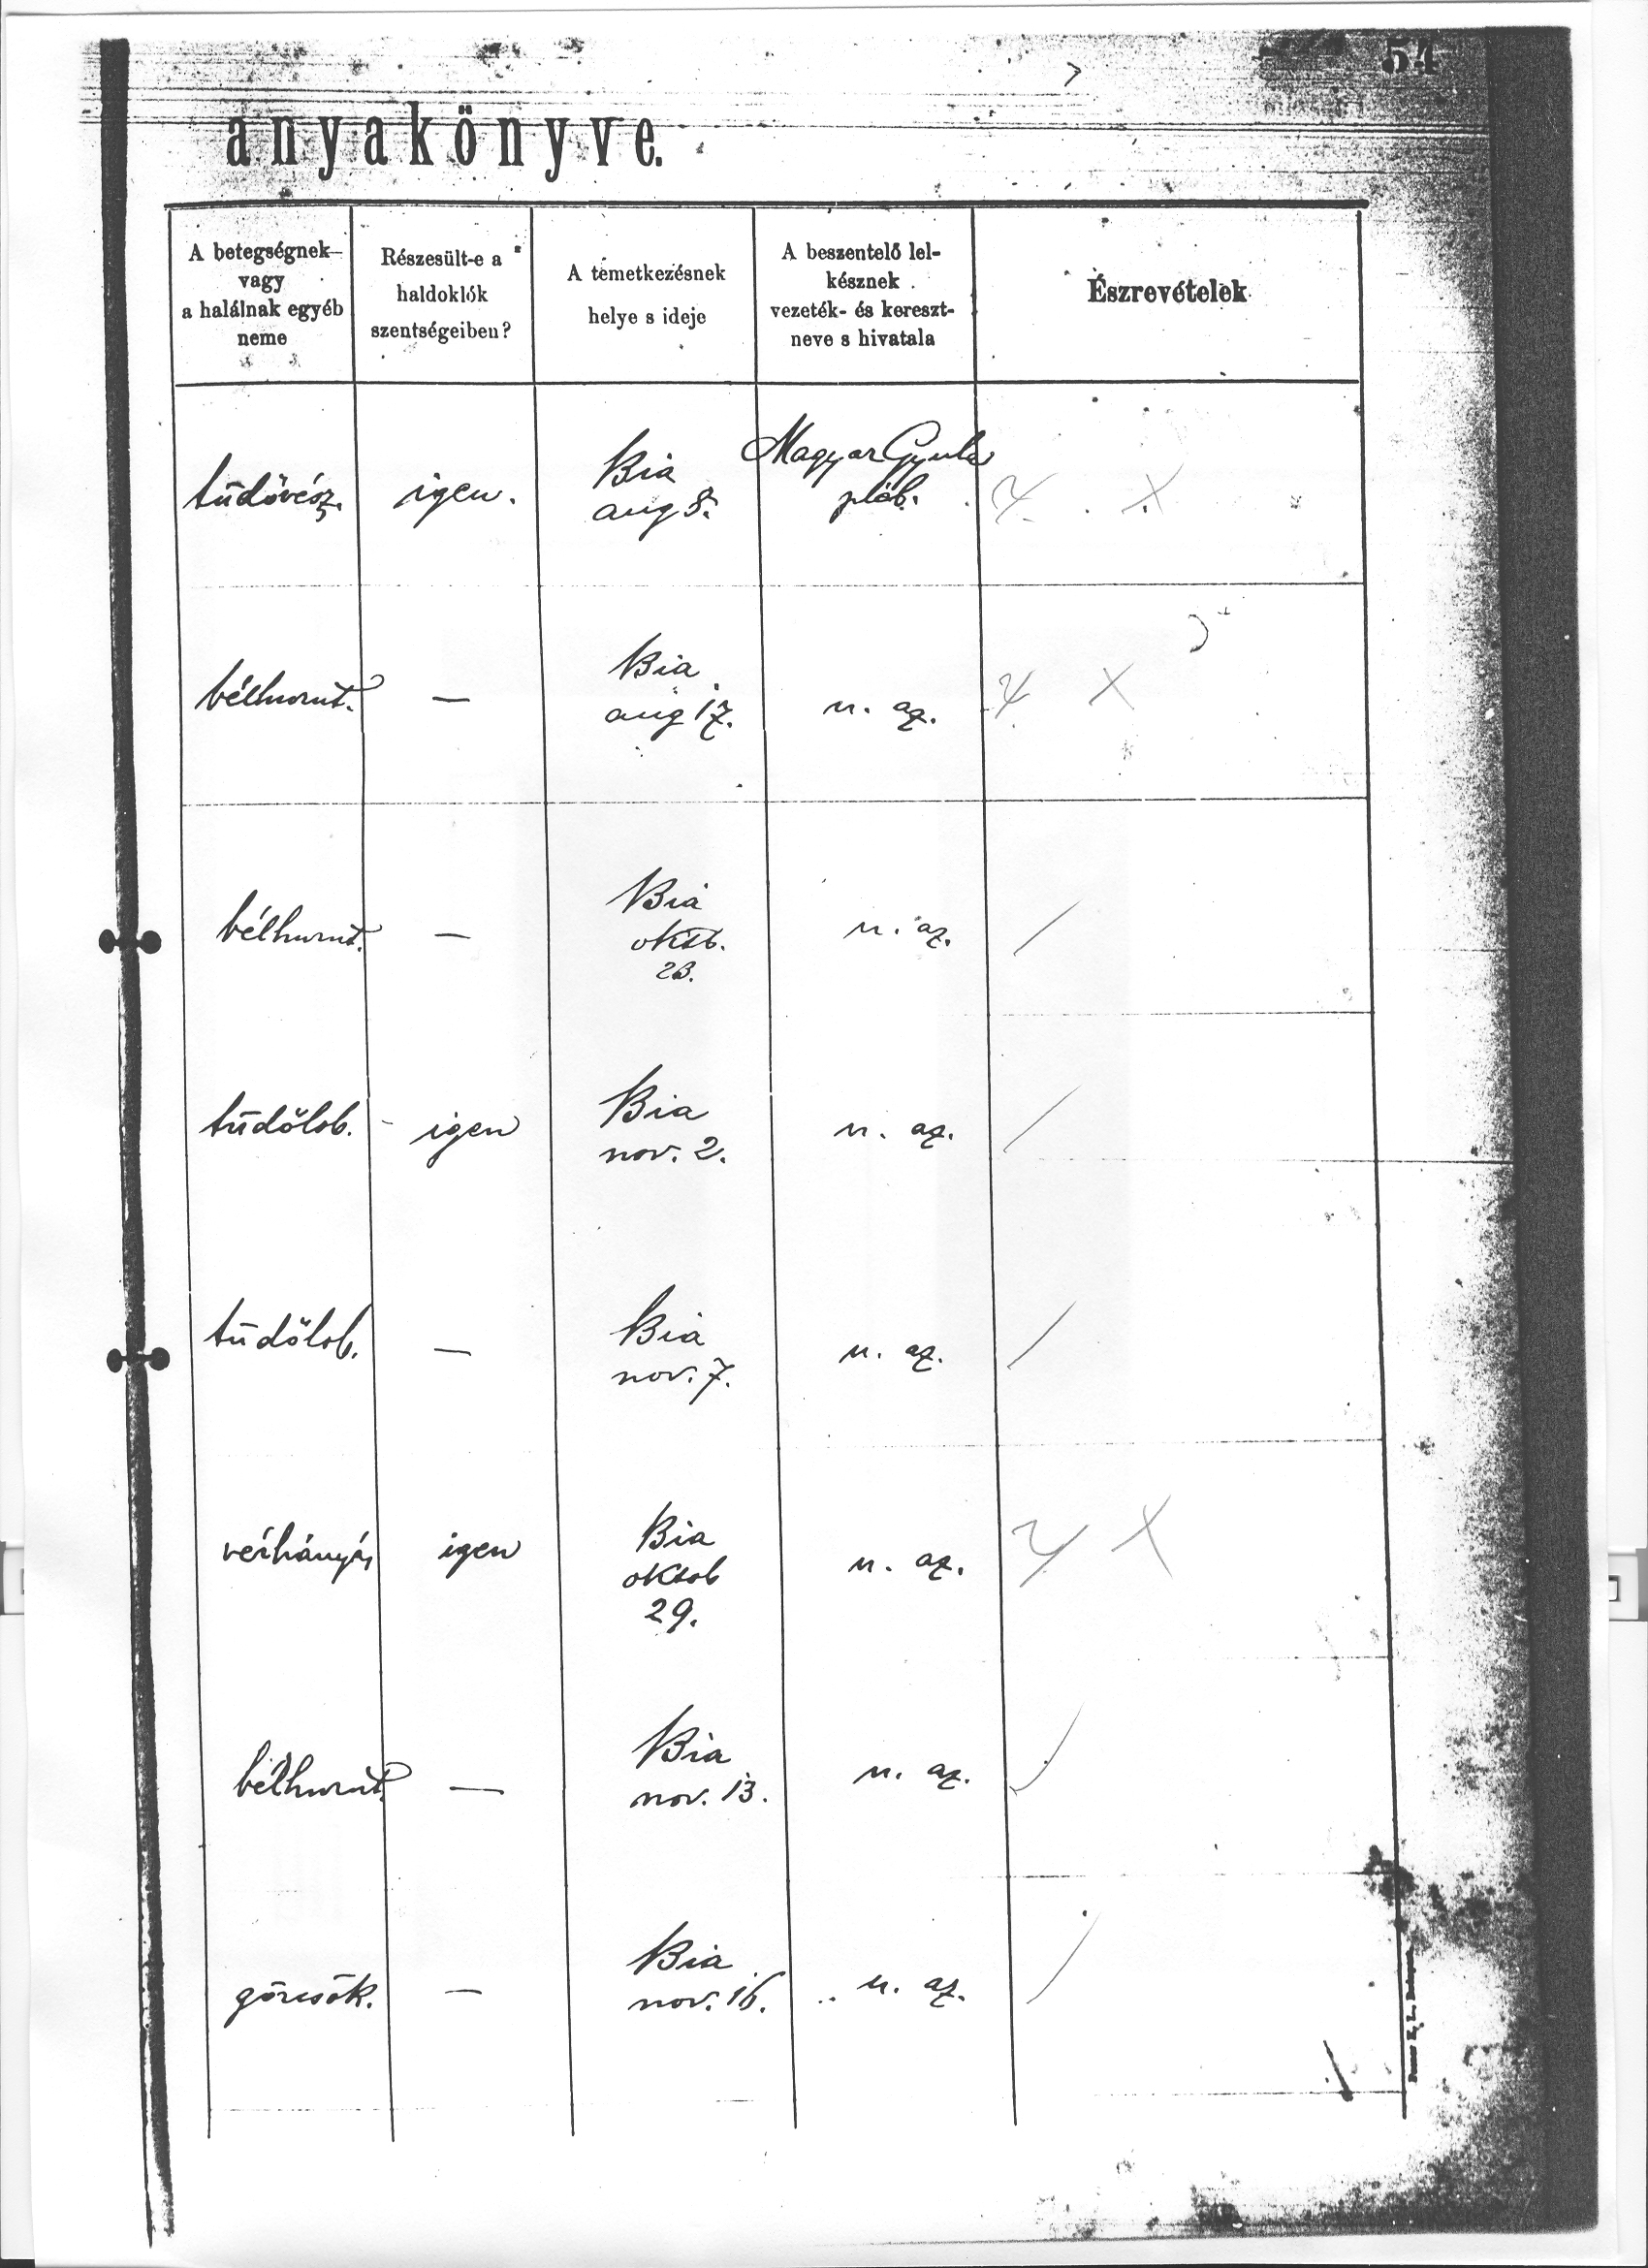 54
anyakönyve.
A betegségnek
vagy
a halálnak egyéb
neme
Részesült-e a
haldoklók
szentségeiben?
A temetkezésnek
helye s ideje
A beszentelő lel-
késznek
vezeték- és kereszt-
neve s hivatala
Észrevételek
tüdővész.
igen.
Bia
aug 8.
Magyar Gyula
pléb.
bélhurut.
—
Bia
aug 17.
u. az.
bélhurut.
—
Bia
oktb.
23.
u. az.
tüdőlob.
igen
Bia
nov. 2.
u. az.
tüdőlob.
—
Bia
nov. 7.
u. az.
vérhányás
igen
Bia
oktob
29.
u. az.
bélhurut.
—
Bia
nov. 13.
u. az.
görcsök.
—
Bia
nov. 16.
u. az.